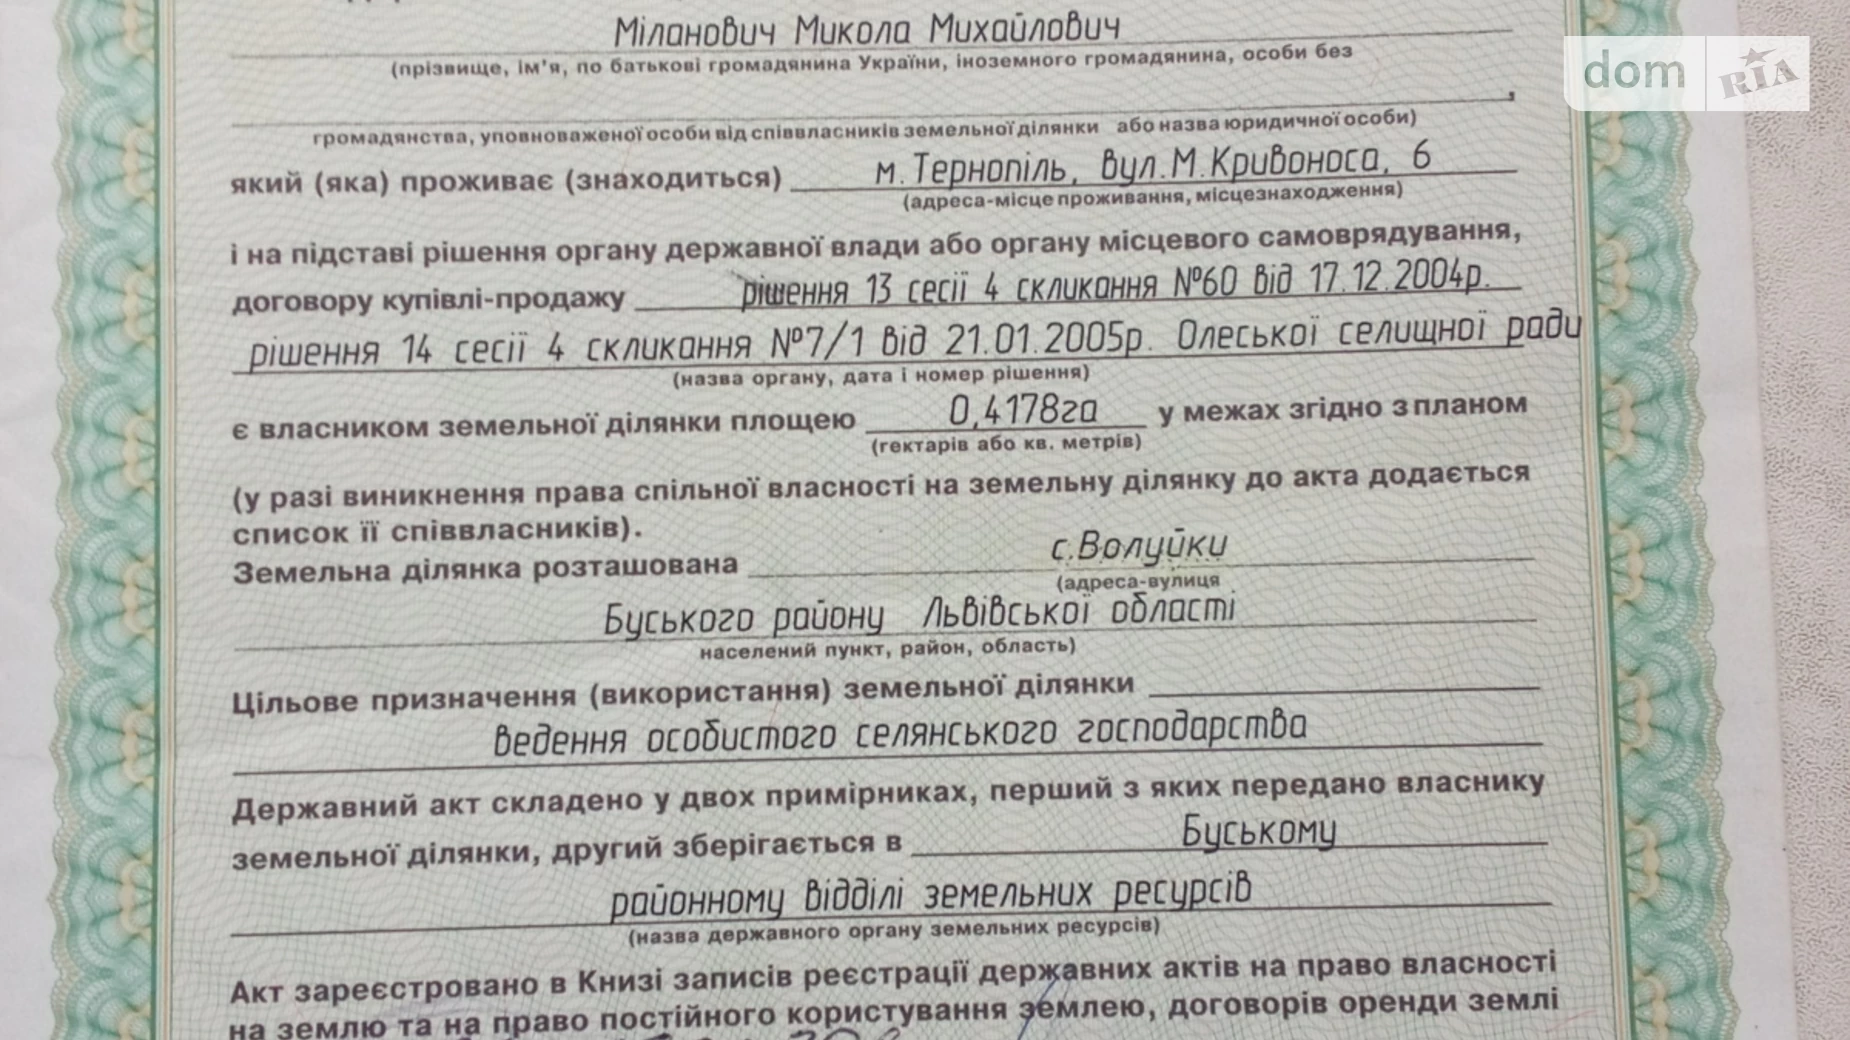 Міланович Микола Михайлович
(прізвище, ім'я, по батькові громадянина України, іноземного громадянина, особи без
dom RIA
,
громадянства, уповноваженої особи від співвласників земельної ділянки або назва юридичної особи)
який (яка) проживає (знаходиться) м.Тернопіль, вул.М.Кривоноса, 6
(адреса-місце проживання, місцезнаходження)
і на підставі рішення органу державної влади або органу місцевого самоврядування,
договору купівлі-продажу рішення 13 сесії 4 скликання №60 від 17.12.2004р.
рішення 14 сесії 4 скликання №7/1 від 21.01.2005р. Олеської селищної ради
(назва органу, дата і номер рішення)
є власником земельної ділянки площею 0,4178га у межах згідно з планом
(гектарів або кв. метрів)
(у разі виникнення права спільної власності на земельну ділянку до акта додається
список її співвласників).
Земельна ділянка розташована с.Волуйки
(адреса-вулиця
Буського району Львівської області
населений пункт, район, область)
Цільове призначення (використання) земельної ділянки
ведення особистого селянського господарства
Державний акт складено у двох примірниках, перший з яких передано власнику
земельної ділянки, другий зберігається в Буському
районному відділі земельних ресурсів
(назва державного органу земельних ресурсів)
Акт зареєстровано в Книзі записів реєстрації державних актів на право власності
на землю та на право постійного користування землею, договорів оренди землі